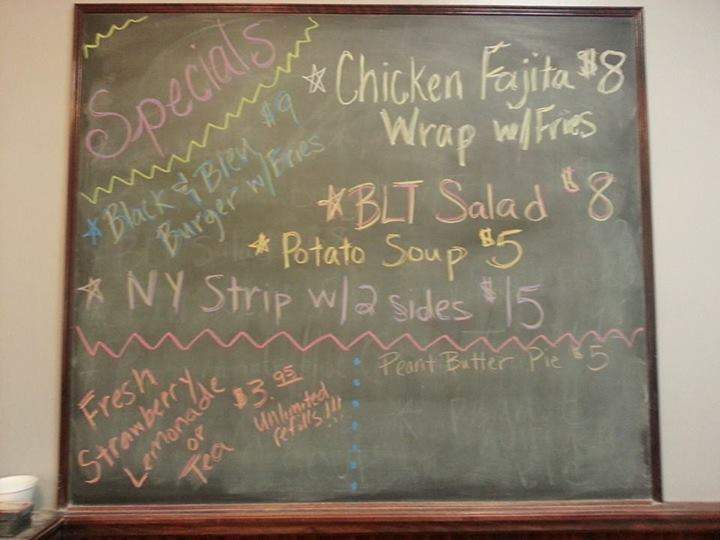 Specials
Chicken Fajita $8
Wrap w/Fries
Black & Bleu $9
Burger w/Fries
BLT Salad $8
Potato Soup $5
NY Strip w/2 sides $15
Fresh
Strawberry
Lemonade
or
Tea
$3.95
Unlimited
refills!!!
Peant Butter Pie $5